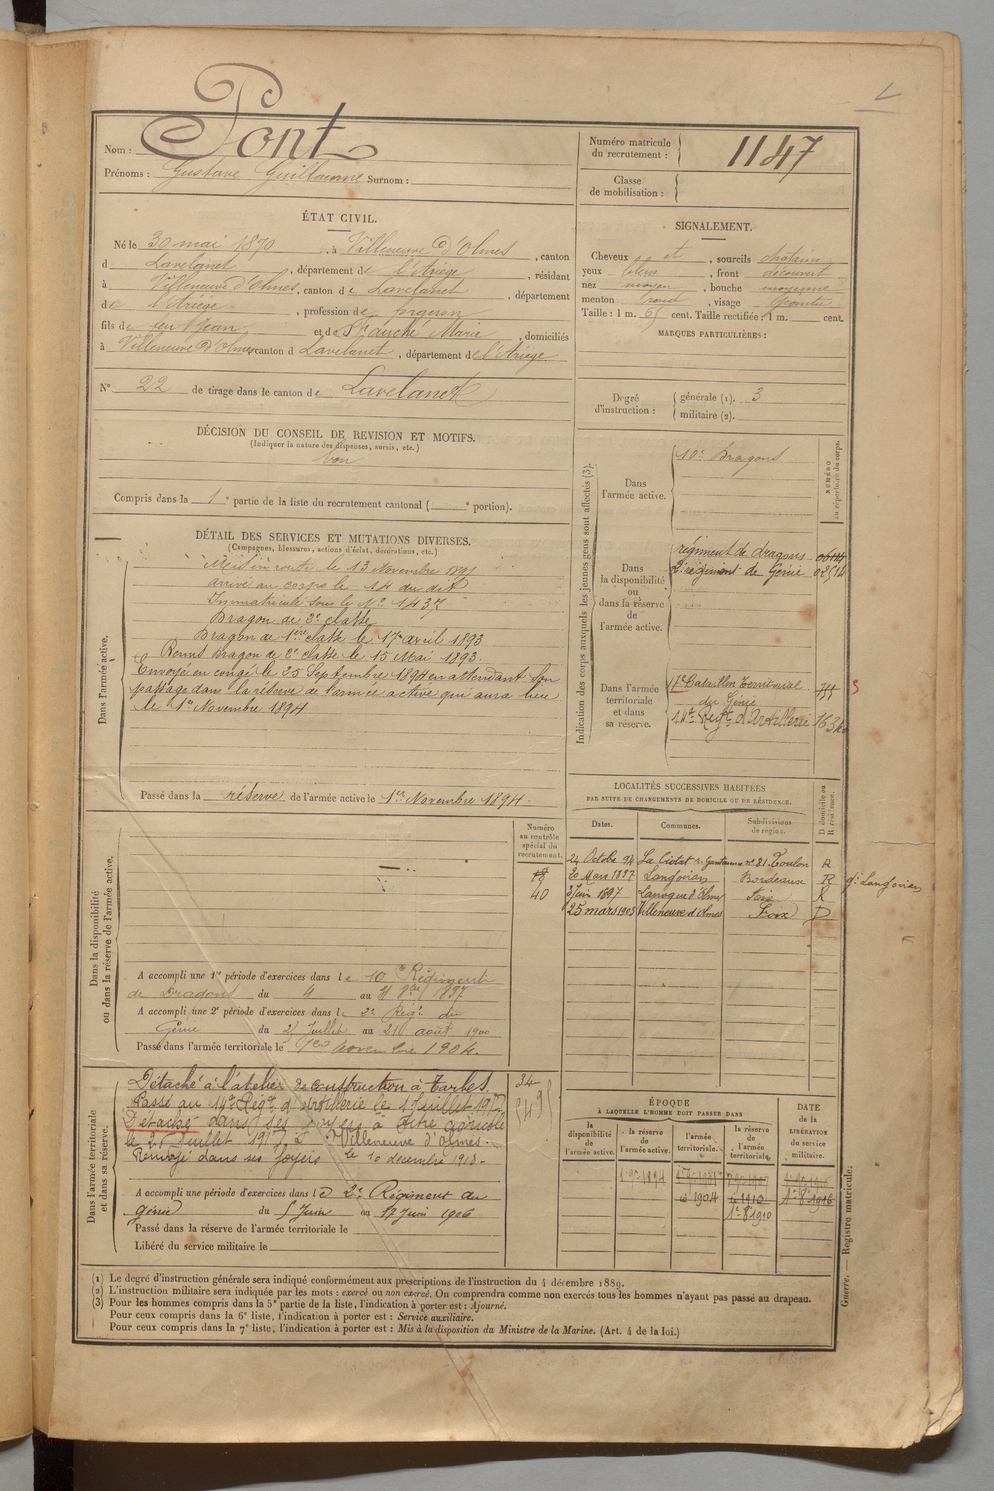 Pont
Nom :
Prénoms : Gustave Guillaume Surnom :
Numéro matricule
du recrutement : 1147
Classe
de mobilisation :
ÉTAT CIVIL.
Né le 30 mai 1870, à Villeneuve d'Olmes, canton
d Lavelanet, département de l'Ariège, résidant
à Villeneuve d'Olmes, canton de Lavelanet, département
de l'Ariège, profession de forgeron
fils de feu Jean et de Marie, domiciliés
à Villeneuve d'Olmes canton d Lavelanet, département de l'Ariège
N° 22 de tirage dans le canton de Lavelanet
SIGNALEMENT.
Cheveux et, sourcils chatains
yeux bleus, front découvert
nez moyen, bouche moyenne
menton rond, visage
Taille : 1 m. 65 cent. Taille rectifiée : 1 m. cent.
MARQUES PARTICULIÈRES :
Degré
d'instruction :
générale (1). 3
militaire (2).
DÉCISION DU CONSEIL DE REVISION ET MOTIFS.
(Indiquer la nature des dispenses, sursis, etc.)
bon
Compris dans la 1e partie de la liste du recrutement cantonal ( e portion).
DÉTAIL DES SERVICES ET MUTATIONS DIVERSES.
(Campagnes, blessures, actions d'éclat, décorations, etc.)
Dans l'armée active.
Mis en route le 13 Novembre 1891
arrivé au corps le 14 du dit
Immatriculé sous le N° 1437
Dragon de 2e classe
Dragon de 1ere classe le 17 avril 1893
Remis Dragon de 2e classe le 15 Mai 1893.
Envoyé en congé le 25 Septembre 1894 en attendant son
passage dans la réserve de l'armée active qui aura lieu
le 1er Novembre 1894
Passé dans la réserve de l'armée active le 1er Novembre 1894.
Indication des corps auxquels les jeunes gens sont affectés (3).
NUMÉRO
au répertoire du corps.
Dans
l'armée active.
10e Dragons
Dans
la disponibilité
ou
dans la réserve
de
l'armée active.
régiment de dragons
2e régiment de Génie
Dans l'armée
territoriale
et dans
sa réserve.
17e Bataillon Territorial
du Génie
14e Regt d'Artillerie
LOCALITÉS SUCCESSIVES HABITÉES
PAR SUITE DE CHANGEMENTS DE DOMICILE OU DE RÉSIDENCE.
Dates. Communes. Subdivisions
de région. D domicile ou
R résidence.
24 Octobre 94 La Ciotat Toulon R
20 Mars 1897 Langoiran Bordeaux R
3 Juin 1897 Laroque d'Olmes Foix R
25 mars 1903 Villeneuve d'Olmes Foix D
Numéro
au contrôle
spécial du
recrutement.
40
Dans la disponibilité
ou dans la réserve de l'armée active.
A accompli une 1re période d'exercices dans le 10e Régiment
de Dragons du 4 au 1897
A accompli une 2e période d'exercices dans l 2e Régt du
Génie du Juillet au août 1900
Passé dans l'armée territoriale le 1er novembre 1904.
Dans l'armée territoriale
et dans sa réserve.
Détaché à l'atelier de construction à Tarbes.
Passé au 14e Régt d'Artillerie le 1 Juillet 1917
Détaché dans ses foyers à titre agricole
le Juillet 1917 à Villeneuve d'Olmes.
Renvoyé dans ses foyers le 10 decembre 1918.
A accompli une période d'exercices dans le 2e Régiment du
Génie du 1 Juin au 17 Juin 1906
Passé dans la réserve de l'armée territoriale le
Libéré du service militaire le
ÉPOQUE
À LAQUELLE L'HOMME DOIT PASSER DANS
la
disponibilité
de
l'armée active.
la réserve
de
l'armée active.
l'armée
territoriale.
la réserve
de
l'armée
territoriale.
DATE
de la
LIBÉRATION
du service
militaire.
1904
1910
Guerre. — Registre matricule.
(1) Le degré d'instruction générale sera indiqué conformément aux prescriptions de l'instruction du 4 décembre 1889.
(2) L'instruction militaire sera indiquée par les mots : exercé ou non exercé. On comprendra comme non exercés tous les hommes n'ayant pas passé au drapeau.
(3) Pour les hommes compris dans la 5e partie de la liste, l'indication à porter est : Ajourné.
Pour ceux compris dans la 6e liste, l'indication à porter est : Service auxiliaire.
Pour ceux compris dans la 7e liste, l'indication à porter est : Mis à la disposition du Ministre de la Marine. (Art. 4 de la loi.)